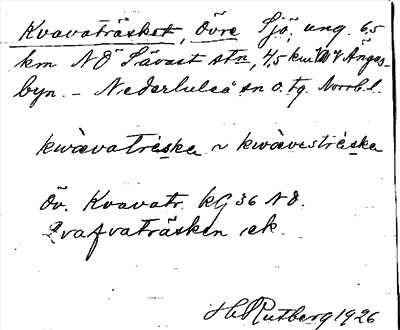 Kvavaträsket, Övre Sjö, ung. 6,5
km NÖ Sävast stn, 4,5 km Ängesbyn. – Nederluleå sn o. tg. Norrb. l.
kwàvatrèska ~ kwàvestrèska
Öv. Kvavatr. kG 36 NÖ.
Qvafvaträsken ek.
H. Rutberg 1926